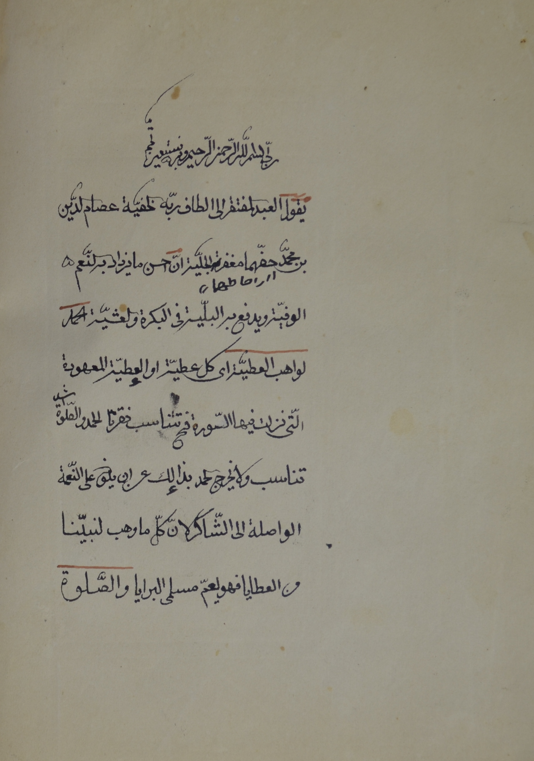 ربّ بسم الله الرّحمن الرّحيم وبه نستعين تمّم
يقول العبد المفتقر الى الطاف ربّه الخفيّة عصام الدّين
بن محمّد حفّهما مغفرته الجليّة انّ احسن ما يزداد به النّعم
اى احاطهما
الوفيّة ويدفع به البليّة فى البكرة والعشيّة الحمد
لواهب العطيّة اى كل عطيّة او العطيّة المعهودة
الّتى نزلت فيها السّورة فح تتناسب فقرتا الحمد والصّلوة اشدّ
تناسب ولا يخرج الحمد بذالك عن ان يكون على النّعمة
الواصلة الى الشّاكر لانّ كلّ ما وهب لنبيّنا
من العطايا فهو يعمّ مسلمى البرايا والصّلوة